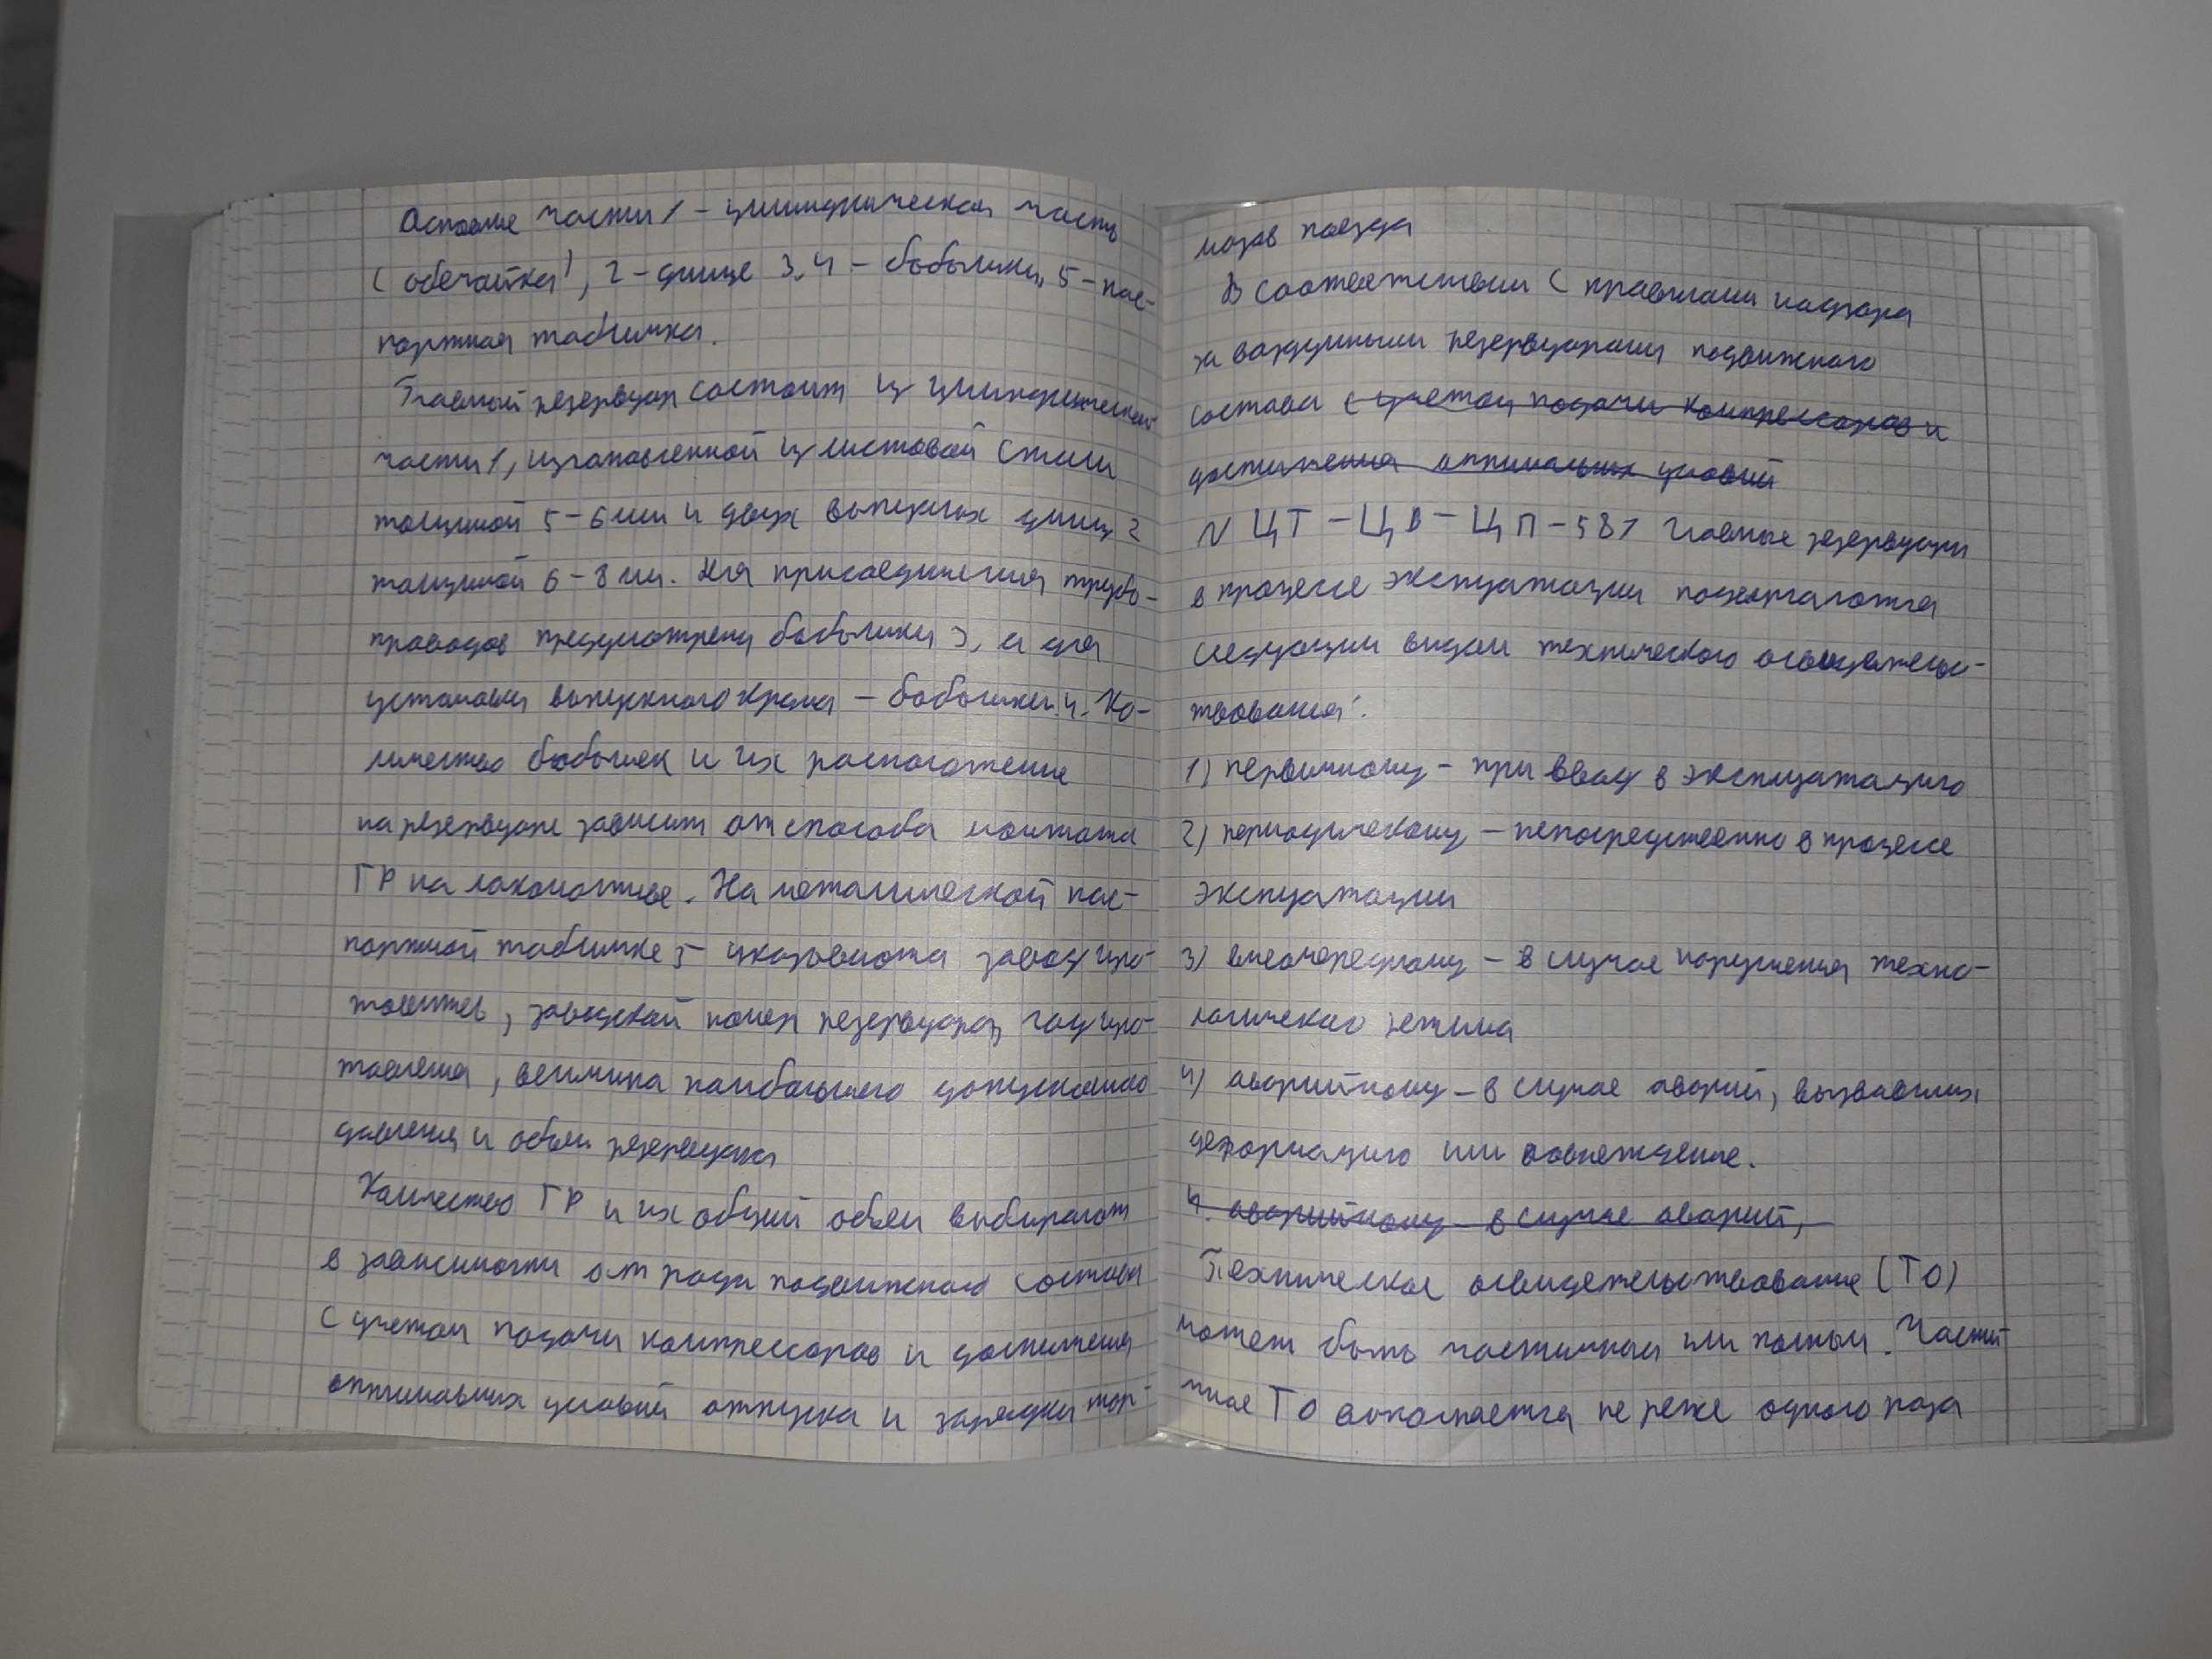 Основные части 1 – цилиндрическая часть
(обечайка), 2 – днище 3,4 – бобышки, 5 – пас-
портная табличка.
Главный резервуар состоит из цилиндрической
части 1, изготовленной из листовой стали
толщиной 5–6 мм и двух выпуклых днищ 2
толщиной 6–8 мм. Для присоединения трубо-
проводов предусмотрены бобышки 3, а для
установки выпускного крана – бобышки 4. Ко-
личество бобышек и их расположение
на резервуаре зависит от способа монтажа
ГР на локомотиве. На металлической пас-
портной табличке 5 указываются завод изго-
товитель, заводской номер резервуара, год изго-
товления, величина наибольшего допускаемого
давления и объём резервуара
Количество ГР и их общий объем выбирают
в зависимости от рода подвижного состава
с учетом подачи компрессоров и достижения
оптимальных условий отпуска и зарядки тор-
мозов поезда
В соответствии с правилами надзора
за воздушными резервуарами подвижного
состава с учетом подачи компрессоров и
достижения оптимальных условий
N ЦТ – ЦВ – ЦП – 581 главные резервуары
в процессе эксплуатации подвергаются
следующим видам технического освидетельс-
твования:
1) первичному – при вводу в эксплуатацию
2) периодическому – непосредственно в процессе
эксплуатации
3) внеочередному – в случае нарушения техно-
логического режима
4) аварийному – в случае аварий, вызвавших
деформацию или повреждение.
4. аварийному – в случае аварий,
Техническое освидетельствование (ТО)
может быть частичным или полным. Части-
чное ТО выполняется не реже одного раза